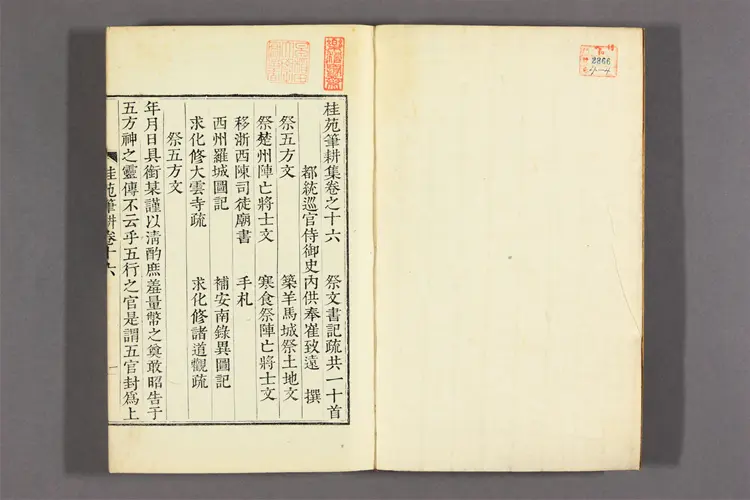 桂苑筆耕集卷之十六 祭文書記疏共一十首
都統巡官侍御史內供奉崔致遠 撰
祭五方文 築羊馬城祭土地文
祭楚州陣亡將士文 寒食祭陣亡將士文
移浙西陳司徒廟書 手札
西州羅城圖記 補安南錄異圖記
求化修大雲寺疏 求化修諸道觀疏
祭五方文
年月日具銜某謹以淸酌庶羞量幣之奠敢昭告于
五方神之靈傳不云乎五行之官是謂五官封爲上
桂苑筆耕卷十六 一
2866